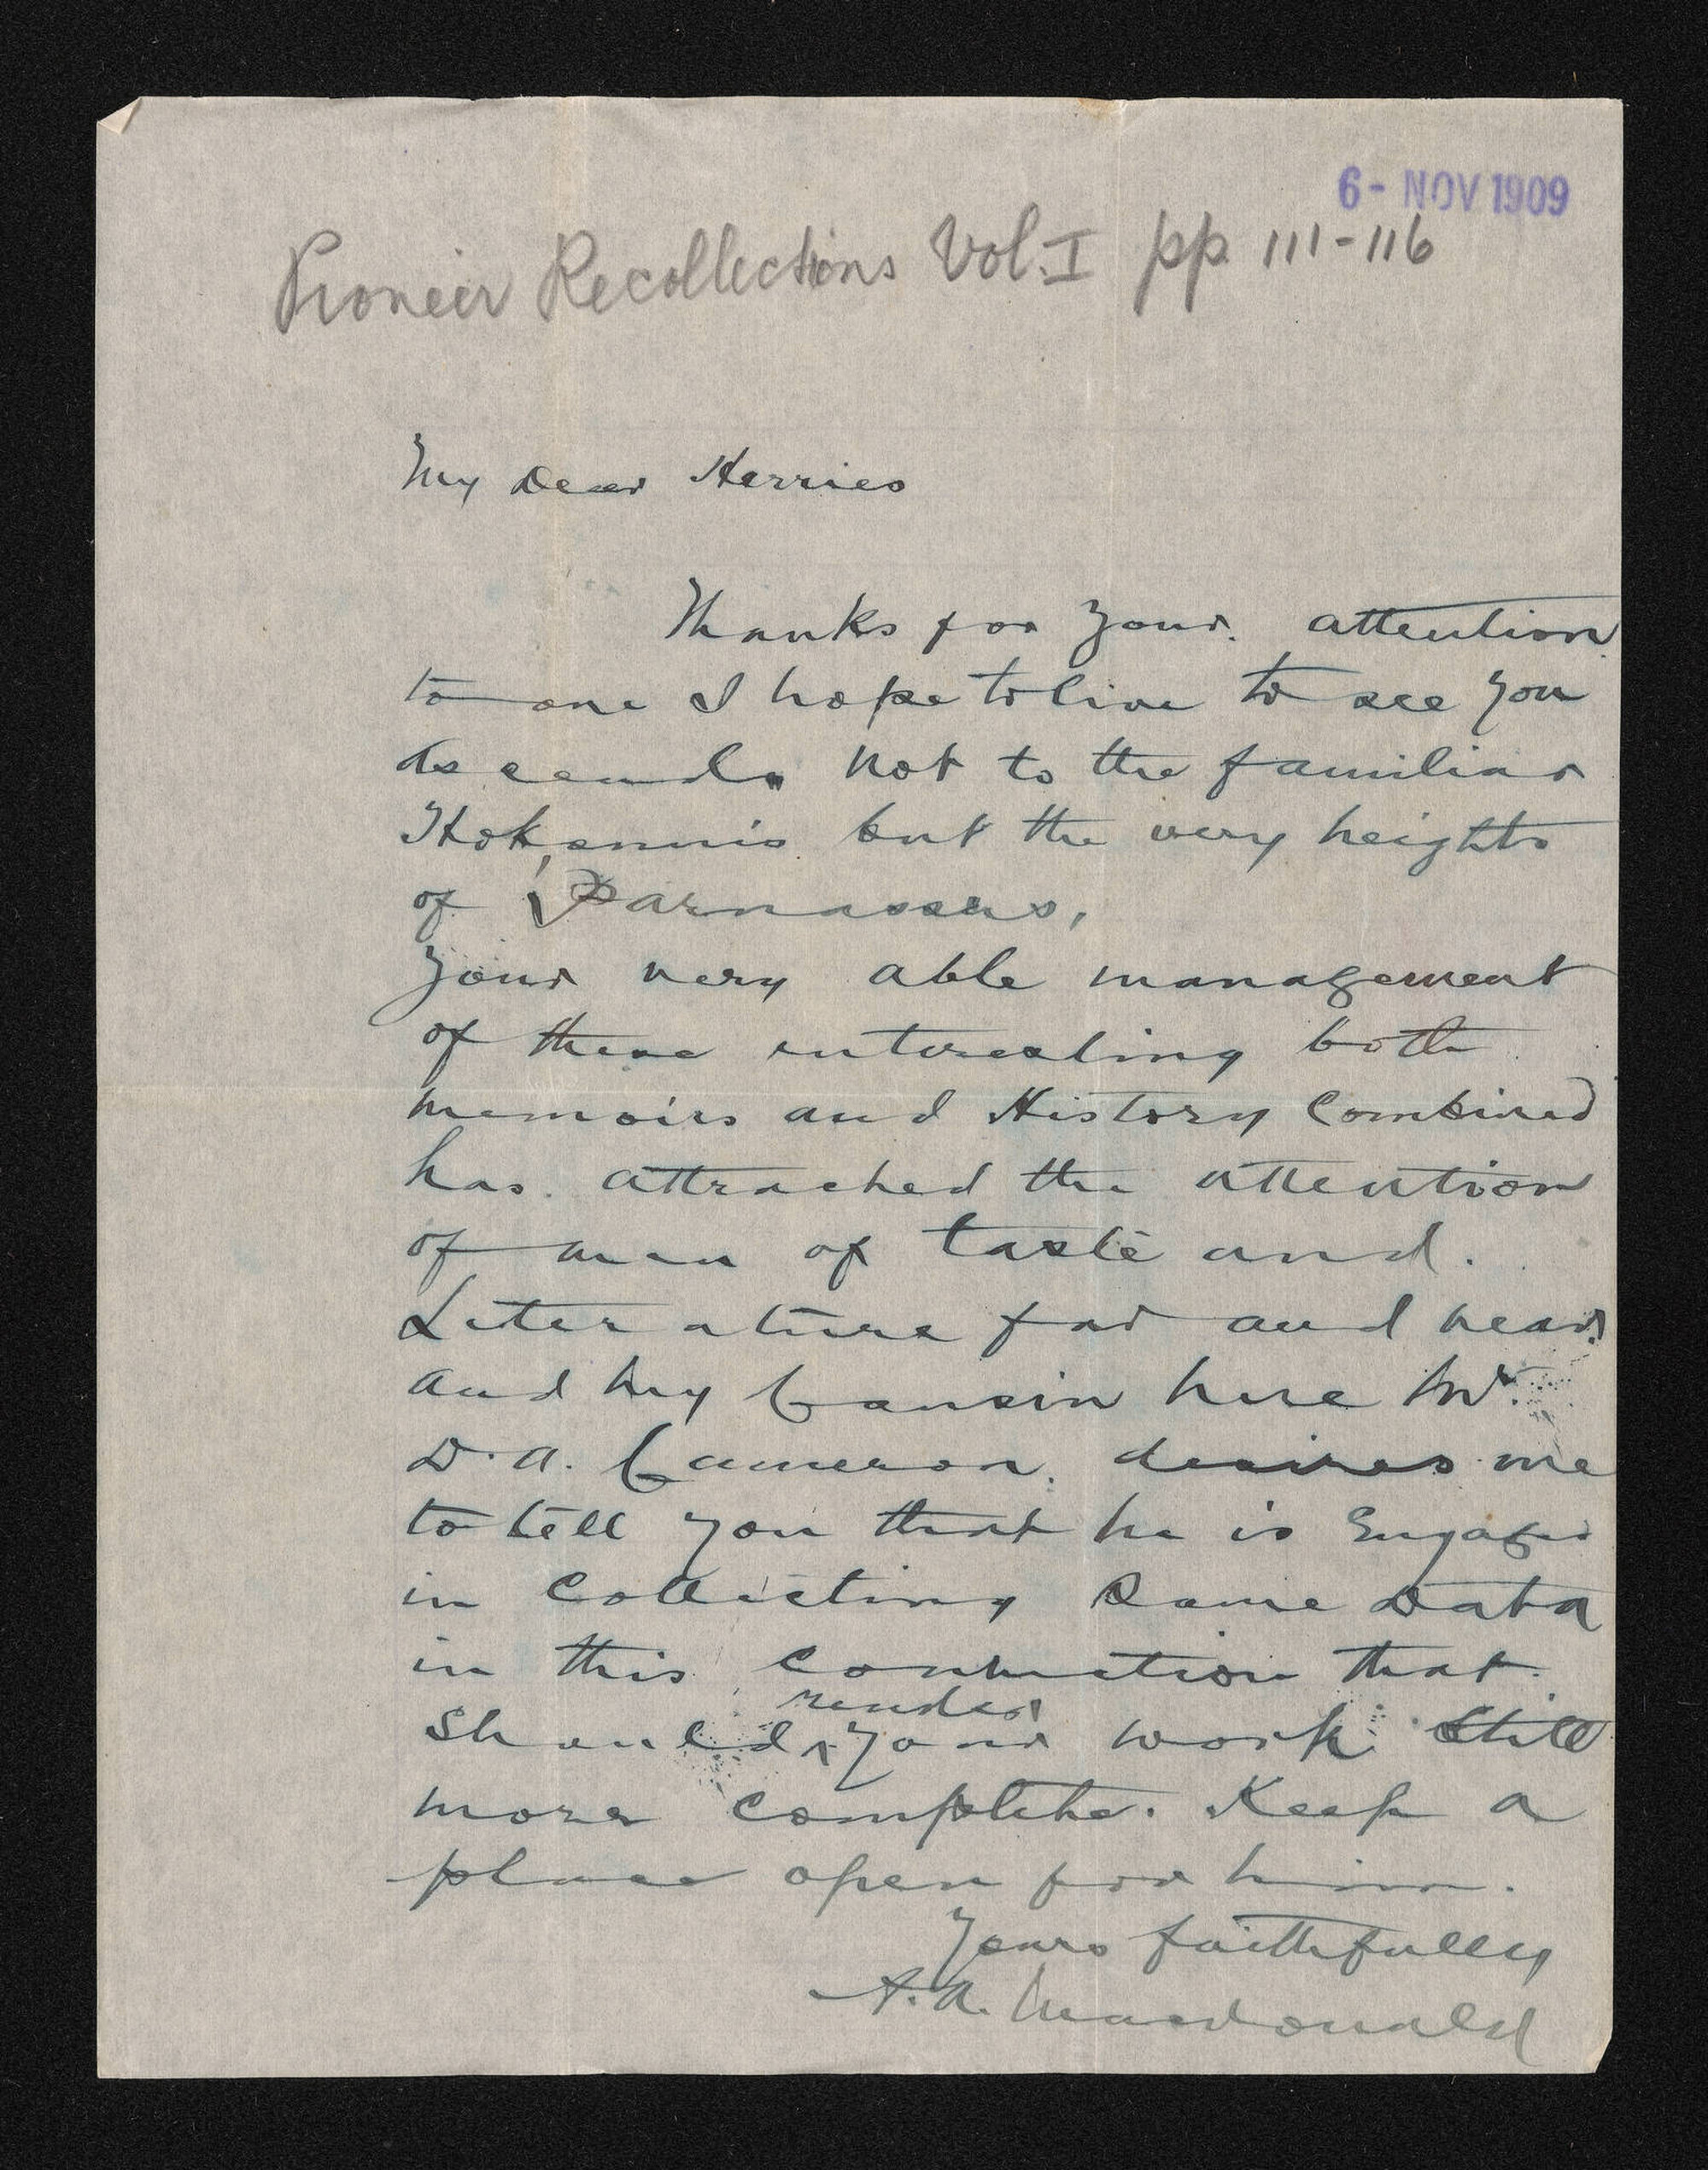 6- NOV 1909
Pioneer Recollections Vol. I pp 111-116
My Dear Herries
Thanks for your. attention
to one I hope to live to see you
ascend not to the familiar
but the very heights
of Parnassus,
Your very able management
of these interesting both
memoirs and History Combined
has. attracked the attention
of men of taste and.
Literature far and near.
and my Cousin here Mr.
D. A. Cameron. desires me
to tell you that he is Engaged
in Collecting Some Data
in this connection that.
render
should ^ your work still
more complete. Keep a
place open for him.
Yours faithfully
A. A. Macdonald